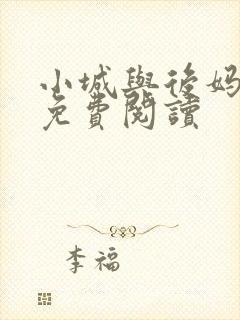 小城與後妈
免費閱讀
李福